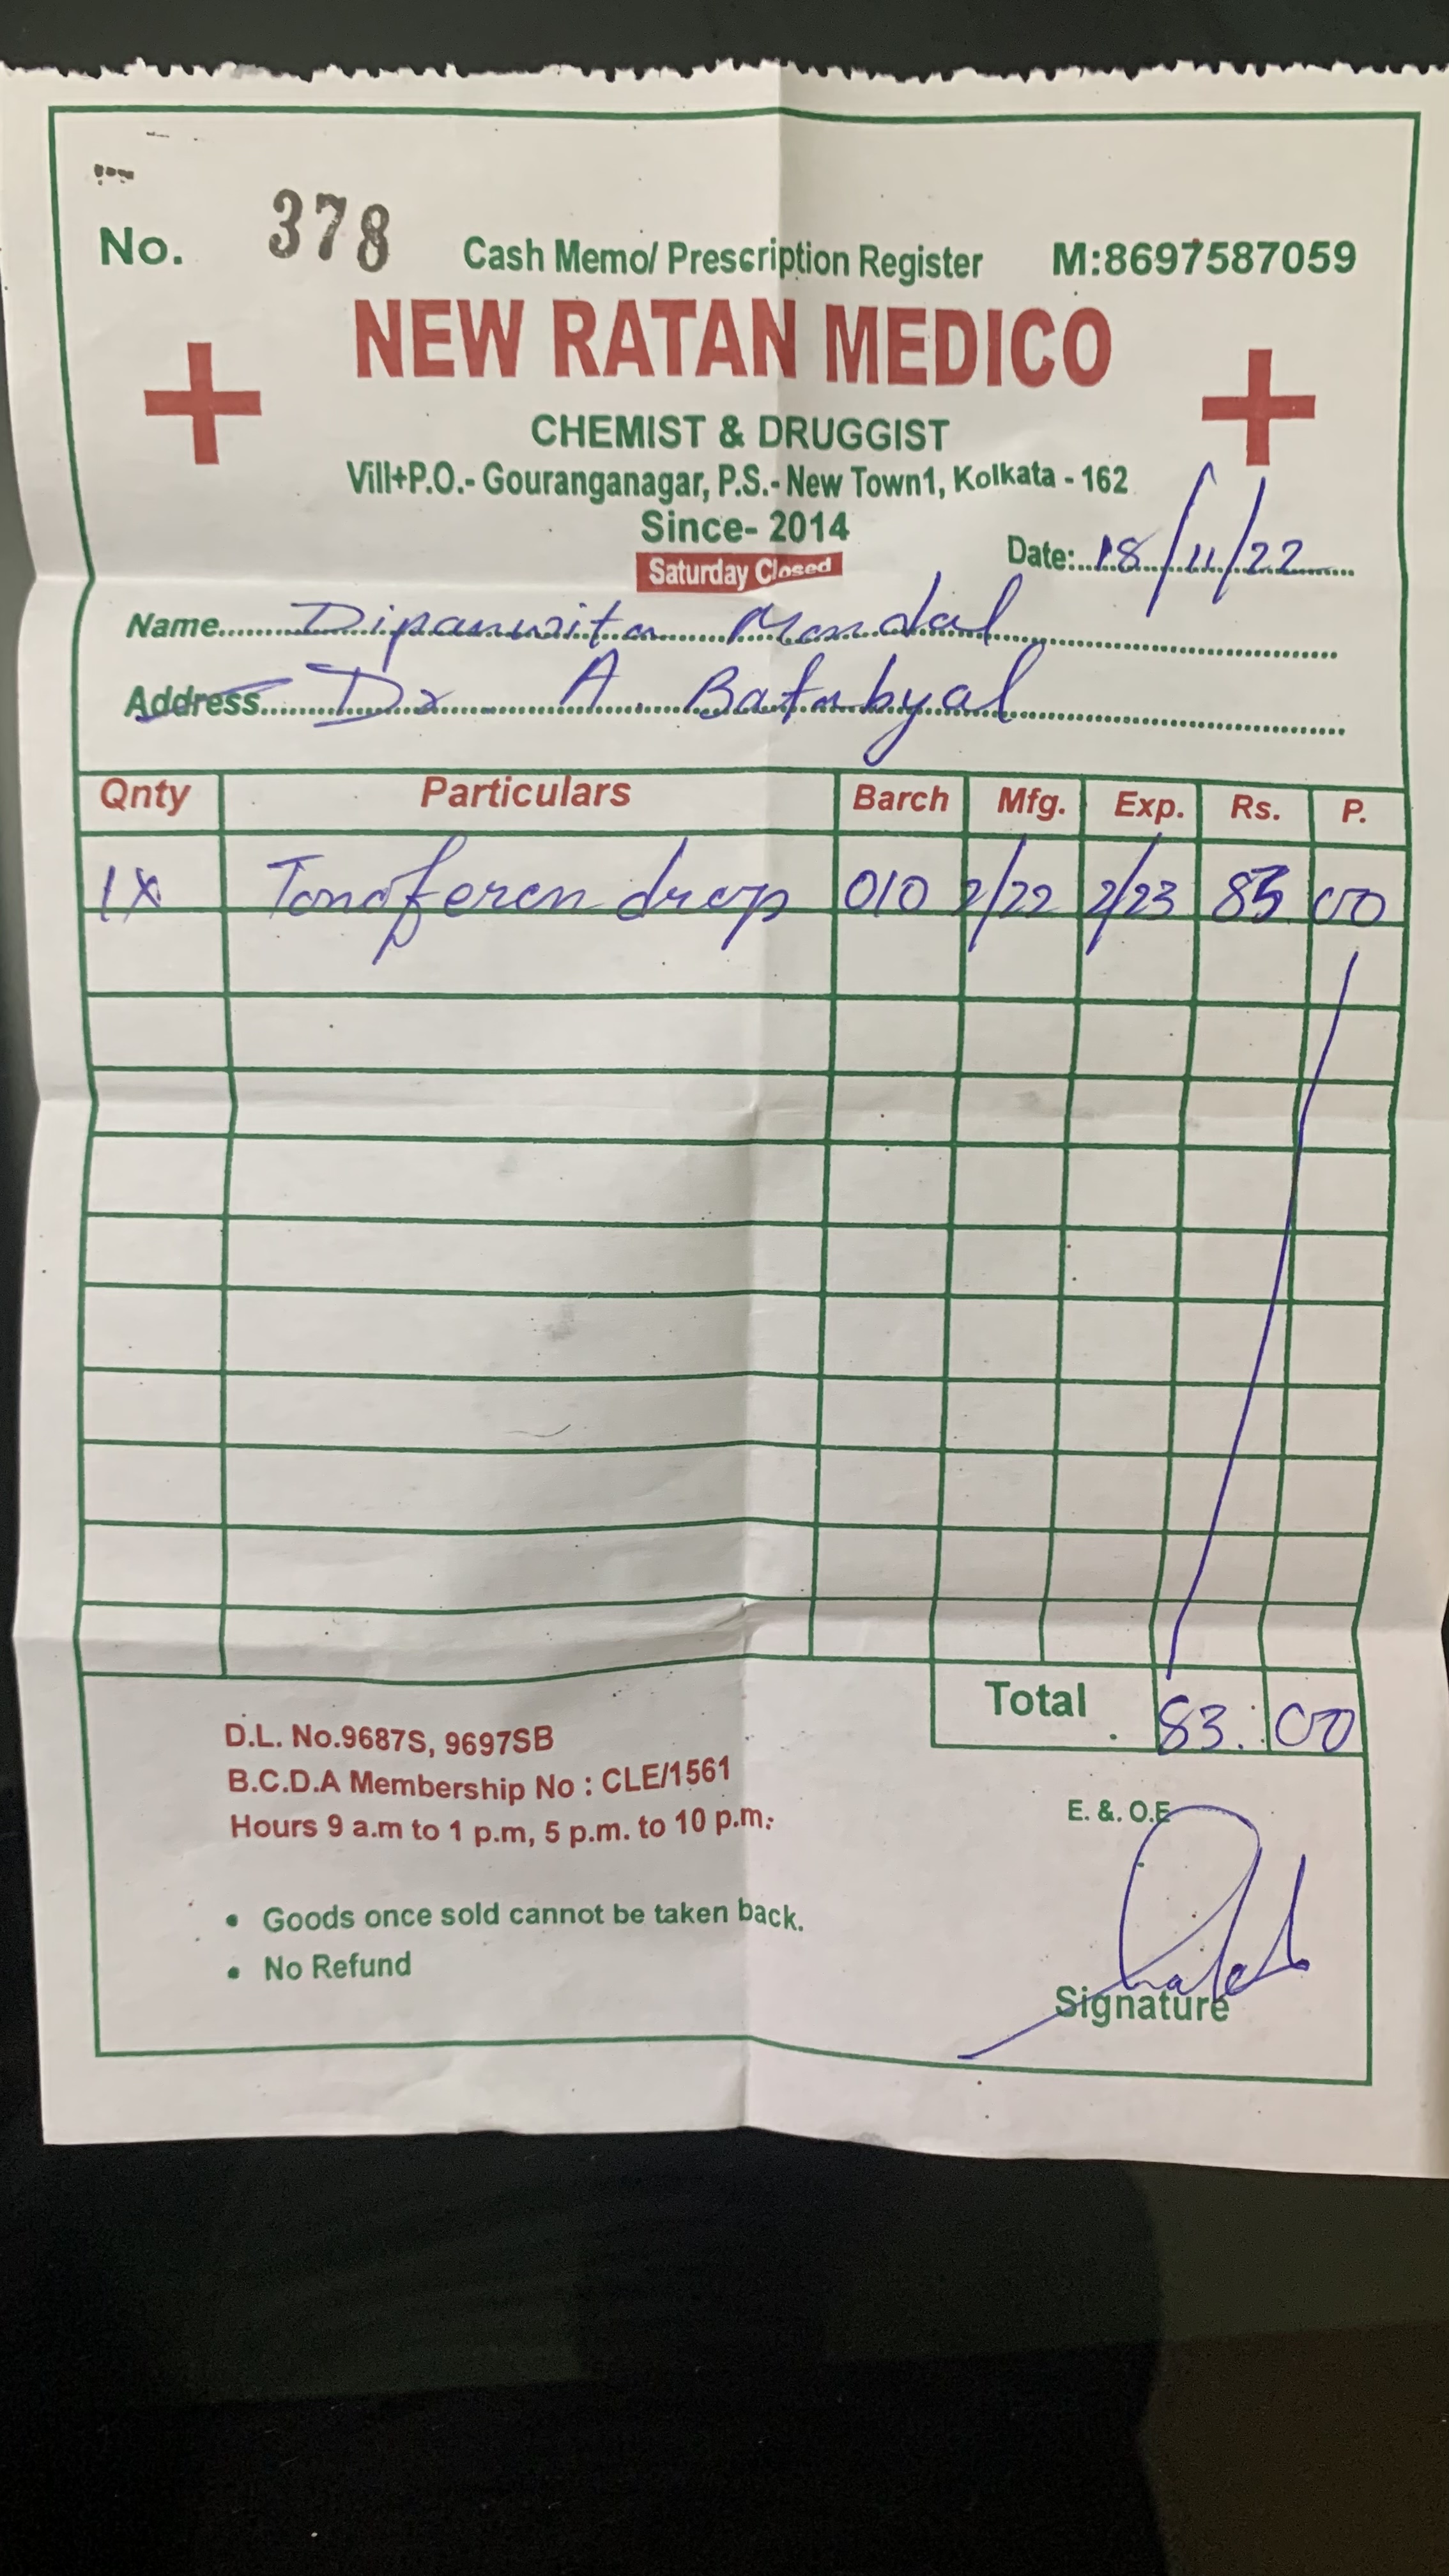 No. 378 Cash Memo/ Prescription Register M:8697587059
NEW RATAN MEDICO
CHEMIST & DRUGGIST
Vill+P.O.- Gouranganagar, P.S.- New Town1, Kolkata - 162
Since- 2014
Saturday Closed
Date: 18/11/22
Name Dipanwita Mondal
Address Dr A. Batabyal
Qnty Particulars Barch Mfg. Exp. Rs. P.
1x Tonoferon drop 010 2/22 2/23 83 00
Total 83. 00
D.L. No.9687S, 9697SB
B.C.D.A Membership No : CLE/1561
Hours 9 a.m to 1 p.m, 5 p.m. to 10 p.m.
E. &. O.E
• Goods once sold cannot be taken back.
• No Refund
Signature